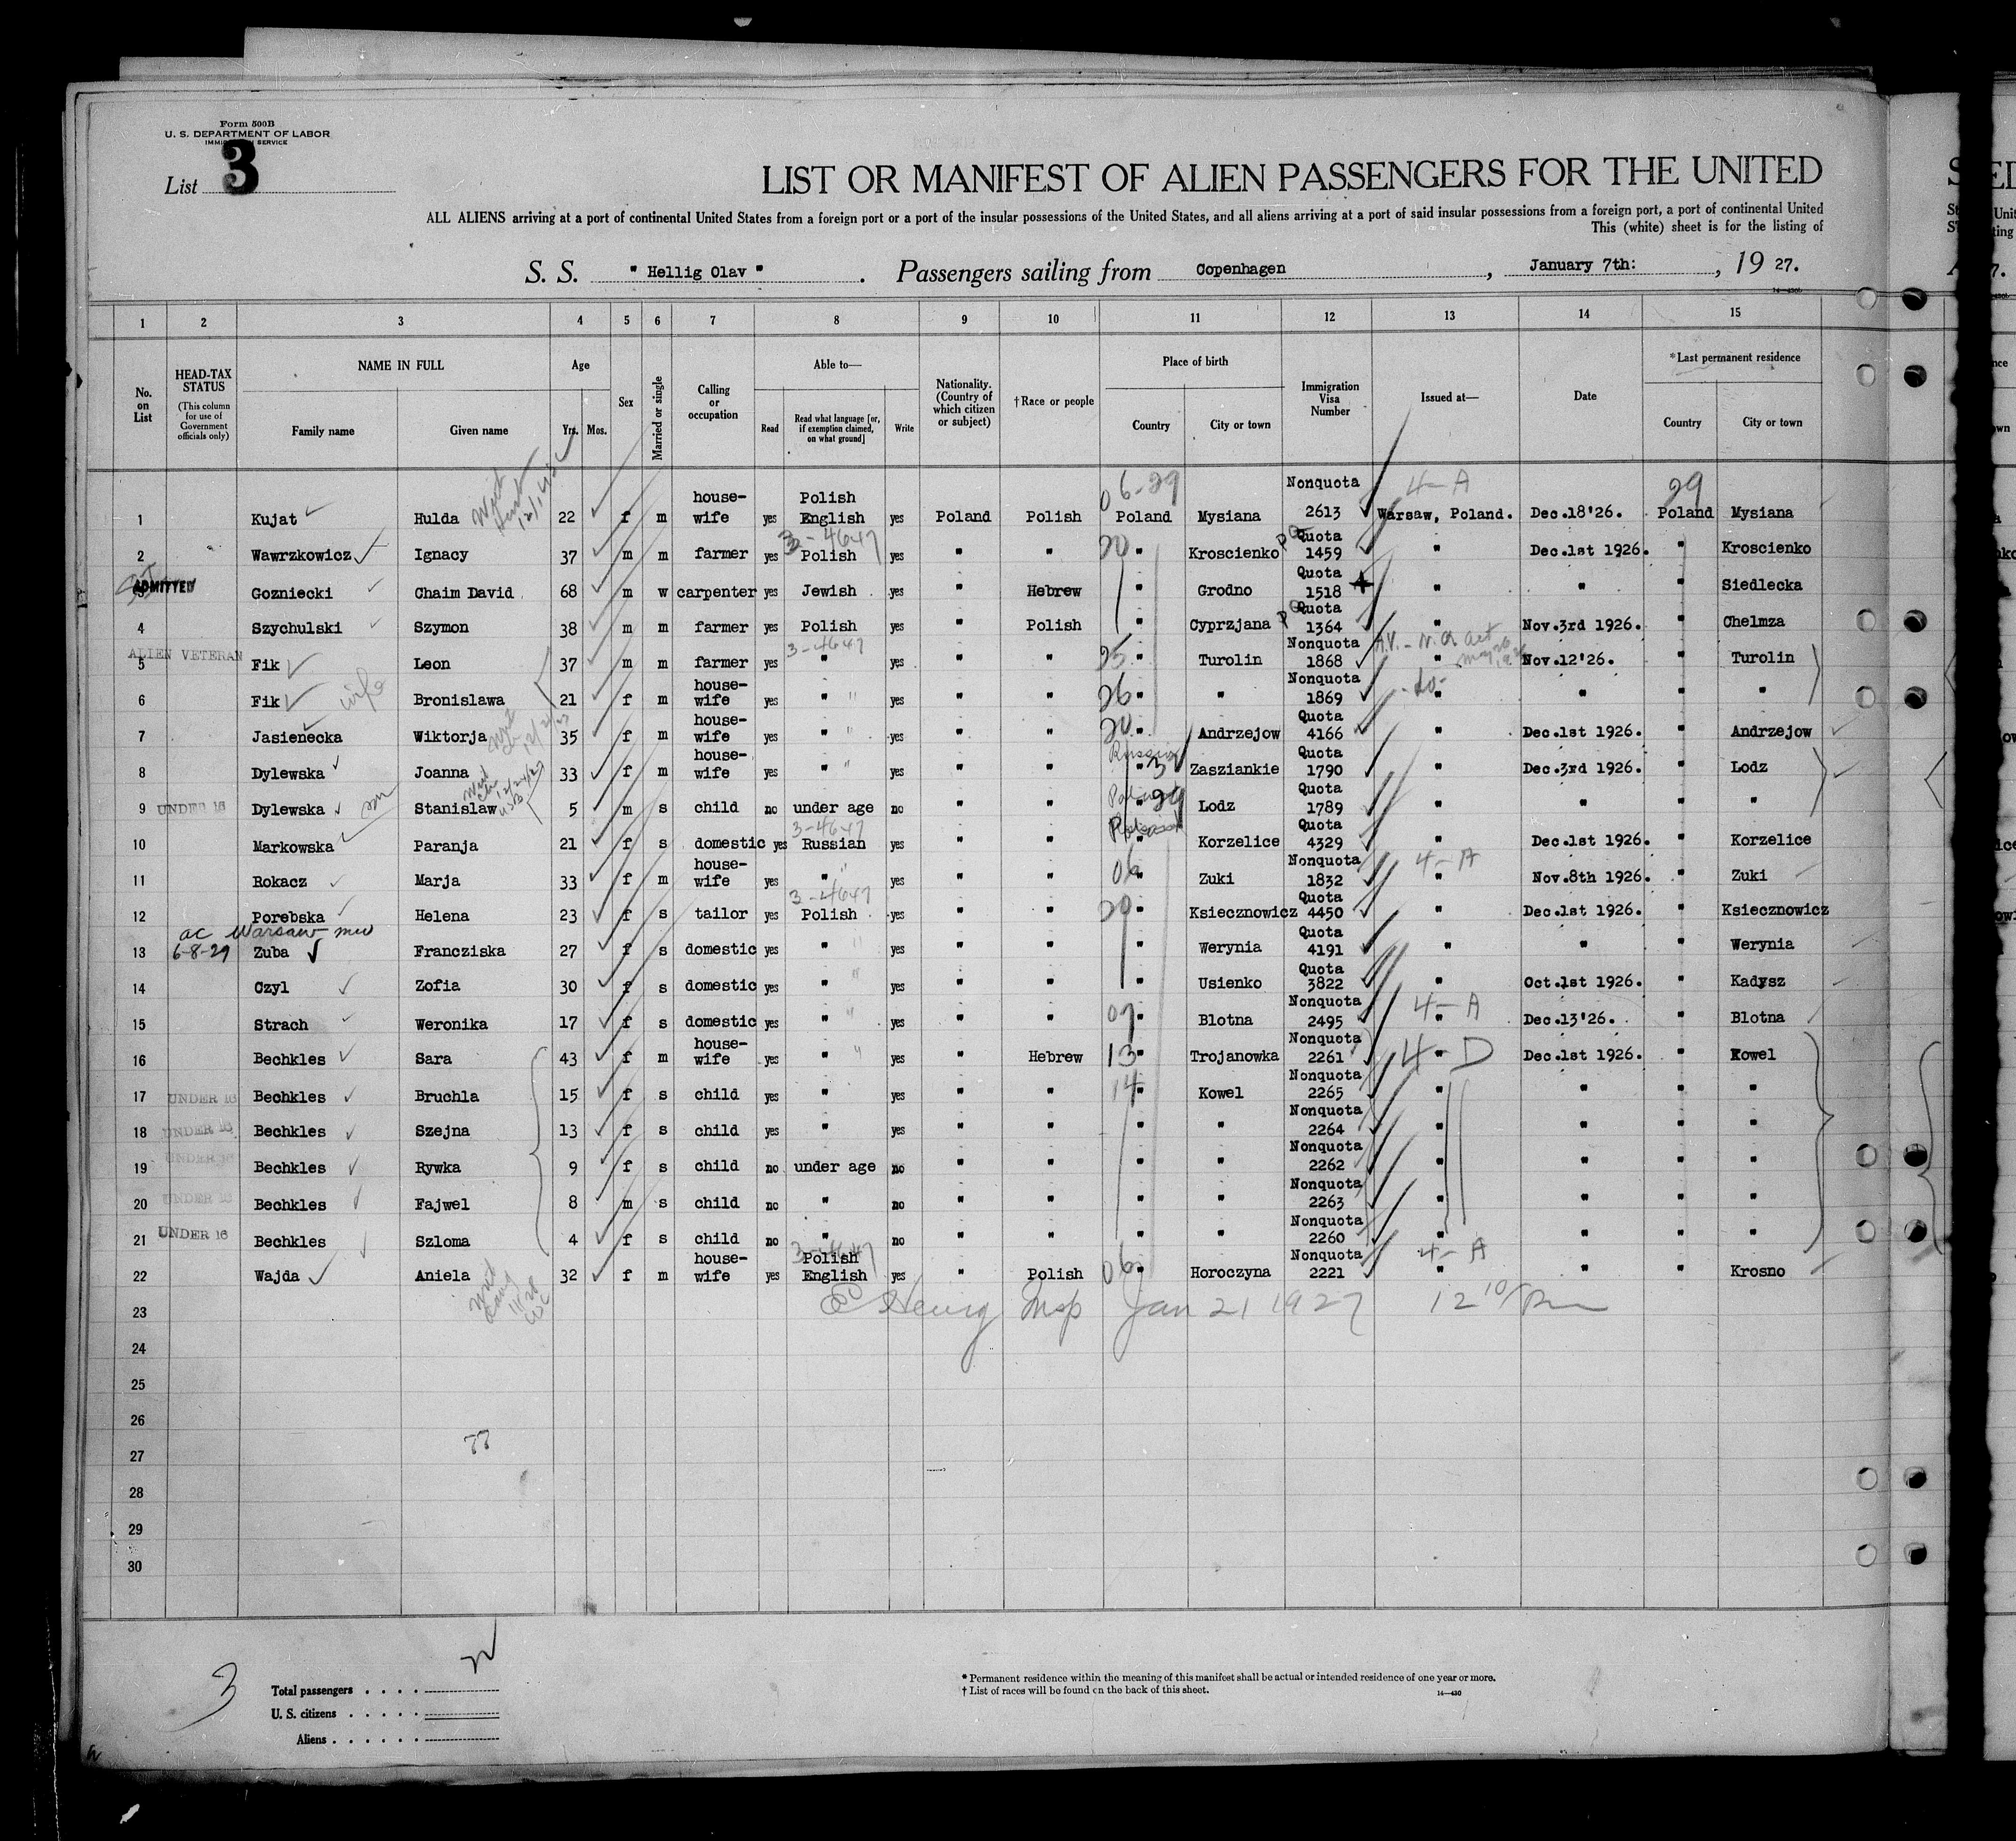 Form 500B
U. S. DEPARTMENT OF LABOR
IMMIGRATION SERVICE
List 3
LIST OR MANIFEST OF ALIEN PASSENGERS FOR THE UNITED
ALL ALIENS arriving at a port of continental United States from a foreign port or a port of the insular possessions of the United States, and all aliens arriving at a port of said insular possessions from a foreign port, a port of continental United
This (white) sheet is for the listing of
S. S. " Hellig Olav " . Passengers sailing from Copenhagen , January 7th: , 19 27.
1 2 3 4 5 6 7 8 9 10 11 12 13 14 15
No. on List HEAD-TAX STATUS (This column for use of Government officials only) NAME IN FULL Family name Given name Age Yrs. Mos. Sex Married or single Calling or occupation Able to— Read Read what language [or, if exemption claimed, on what ground] Write Nationality. (Country of which citizen or subject) †Race or people Place of birth Country City or town Immigration Visa Number Issued at— Date *Last permanent residence Country City or town
06-29 4-A 29
1 Kujat Hulda 22 f m house-wife yes Polish English yes Poland Polish Poland Mysiana Nonquota 2613 Warsaw, Poland. Dec.18'26. Poland Mysiana
3-4647
2 Wawrzkowicz Ignacy 37 m m farmer yes Polish yes " " 20 " Kroscienko Quota 1459 " Dec.1st 1926. " Kroscienko
ADMITTED
3 Gozniecki Chaim David 68 m w carpenter yes Jewish yes " Hebrew " Grodno Quota 1518 " " " Siedlecka
4 Szychulski Szymon 38 m m farmer yes Polish yes " Polish " Cyprzjana Quota 1364 " Nov.3rd 1926. " Chelmza
ALIEN VETERAN 3-4647
5 Fik Leon 37 m m farmer yes " yes " " 25 " Turolin Nonquota 1868 " Nov.12'26. " Turolin
6 Fik wife Bronislawa 21 f m house-wife yes " yes " " 26 " " Nonquota 1869 -do- " " " "
7 Jasienecka Wiktorja 35 f m house-wife yes " yes " " 20 " Andrzejow Quota 4166 " Dec.1st 1926. " Andrzejow
8 Dylewska Joanna 33 f m house-wife yes " yes " " Russia " Zasziankie Quota 1790 " Dec.3rd 1926. " Lodz
9 UNDER 16 Dylewska son Stanislaw 5 m s child no under age no " " Poland 29 " Lodz Quota 1789 " " " "
3-4647 Poland
10 Markowska Paranja 21 f s domestic yes Russian yes " " " Korzelice Quota 4329 " Dec.1st 1926. " Korzelice
11 Rokacz Marja 33 f m house-wife yes " yes " " 06 " Zuki Nonquota 1832 4-A " Nov.8th 1926. " Zuki
3-4647
12 Porebska Helena 23 f s tailor yes Polish yes " " 20 " Ksiecznowicz Quota 4450 " Dec.1st 1926. " Ksiecznowicz
ac Warsaw mw
13 6-8-29 Zuba Francziska 27 f s domestic yes " yes " " " Werynia Quota 4191 " " " Werynia
14 Czyl Zofia 30 f s domestic yes " yes " " " Usienko Quota 3822 " Oct.1st 1926. " Kadysz
15 Strach Weronika 17 f s domestic yes " yes " " 07 " Blotna Nonquota 2495 4-A " Dec.13'26. " Blotna
16 Bechkles Sara 43 f m house-wife yes " yes " Hebrew 13 " Trojanowka Nonquota 2261 4-D " Dec.1st 1926. " Kowel
17 UNDER 16 Bechkles Bruchla 15 f s child yes " yes " " 14 " Kowel Nonquota 2265 " " " "
18 UNDER 16 Bechkles Szejna 13 f s child yes " yes " " " " Nonquota 2264 " " " "
19 UNDER 16 Bechkles Rywka 9 f s child no under age no " " " " Nonquota 2262 " " " "
20 UNDER 16 Bechkles Fajwel 8 m s child no " no " " " " Nonquota 2263 " " " "
21 UNDER 16 Bechkles Szloma 4 f s child no " no " " " " Nonquota 2260 " " " "
3-4647
22 Wajda Aniela 32 f m house-wife yes Polish English yes " Polish 06 " Horoczyna Nonquota 2221 4-A " " " Krosno
23 Henry Insp Jan 21 1927 12 10/Pm
24
25
26
27 77
28
29
30
3
Total passengers
U. S. citizens
Aliens
* Permanent residence within the meaning of this manifest shall be actual or intended residence of one year or more.
† List of races will be found on the back of this sheet. 14—430